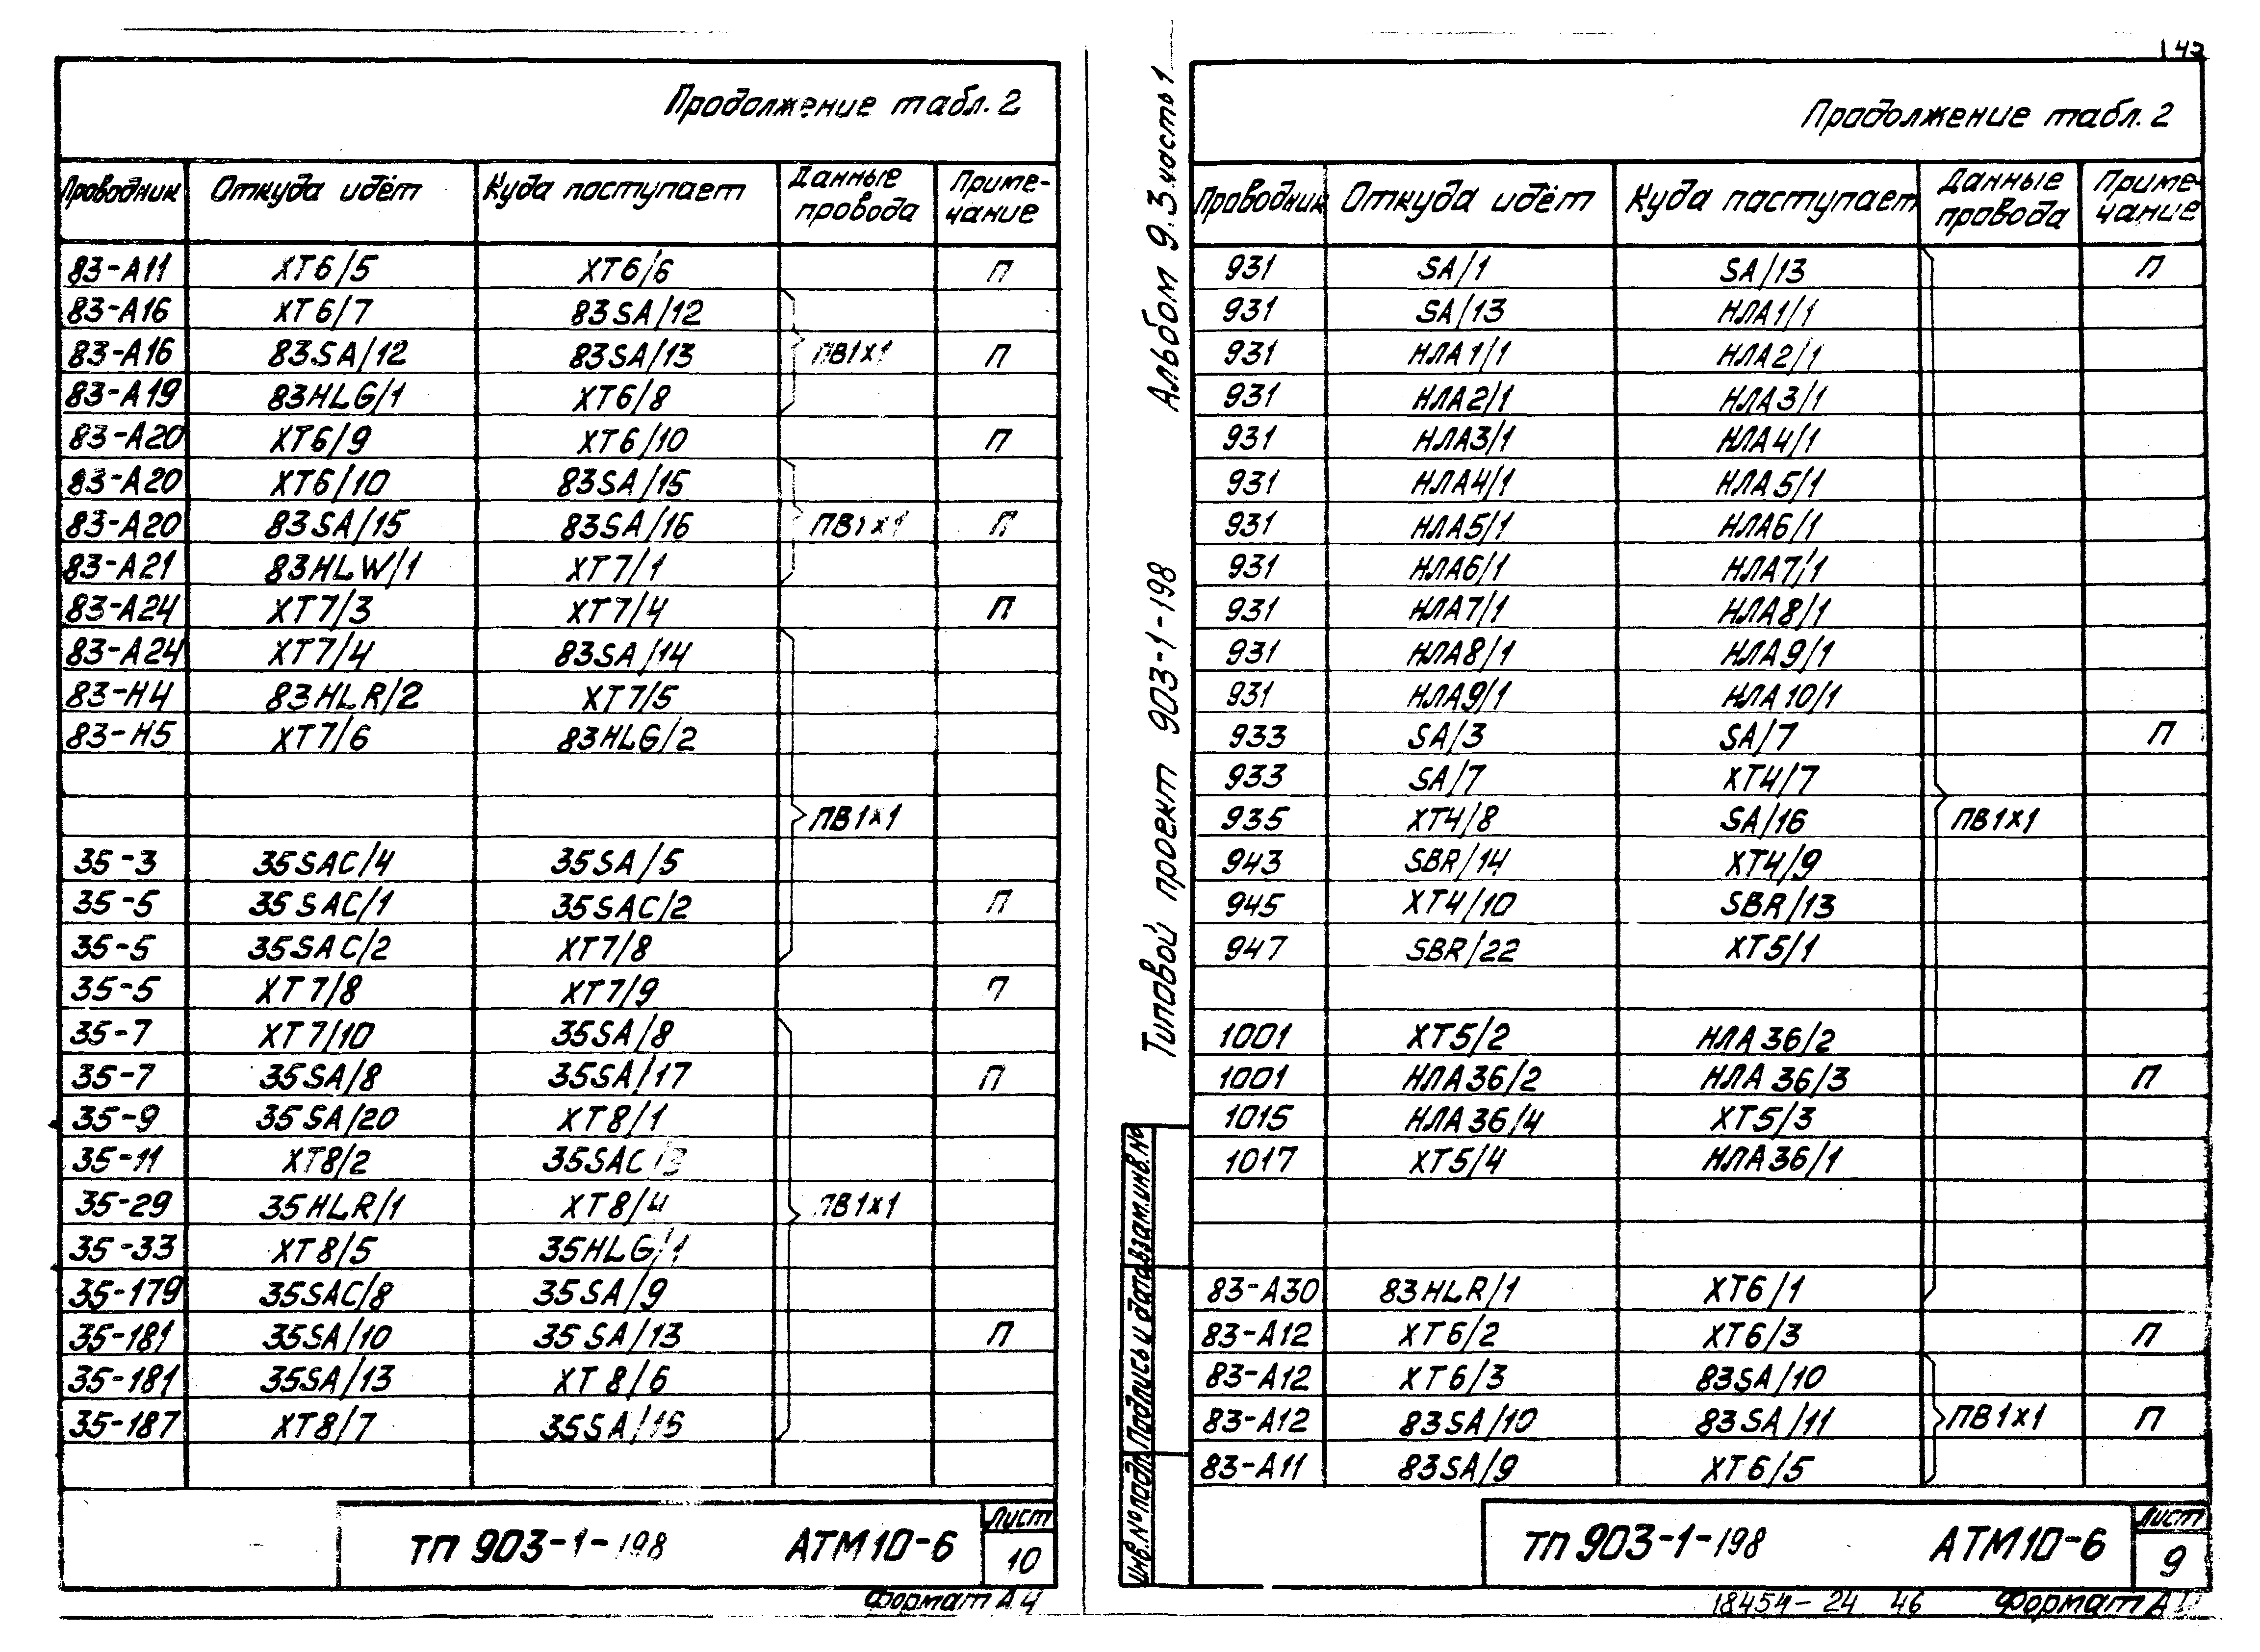 Продолжение табл. 2
Проводник Откуда идёт Куда поступает Данные провода Приме-чание
83-А11 XT6/5 XT6/6 П
83-А16 XT6/7 83SA/12
83-А16 83SA/12 83SA/13 ПВ1х1 П
83-А19 83HLG/1 XT6/8
83-А20 XT6/9 XT6/10 П
83-А20 XT6/10 83SA/15
83-А20 83SA/15 83SA/16 ПВ1х1 П
83-А21 83HLW/1 XT7/1
83-А24 XT7/3 XT7/4 П
83-А24 XT7/4 83SA/14
83-Н4 83HLR/2 XT7/5
83-Н5 XT7/6 83HLG/2
ПВ1х1
35-3 35SAC/4 35SA/5
35-5 35SAC/1 35SAC/2 П
35-5 35SAC/2 XT7/8
35-5 XT7/8 XT7/9 П
35-7 XT7/10 35SA/8
35-7 35SA/8 35SA/17 П
35-9 35SA/20 XT8/1
35-11 XT8/2 35SAC/3
35-29 35HLR/1 XT8/4 ПВ1х1
35-33 XT8/5 35HLG/1
35-179 35SAC/8 35SA/9
35-181 35SA/10 35SA/13 П
35-181 35SA/13 XT8/6
35-187 XT8/7 35SA/15
ТП 903-1-198 АТМ10-6
Лист
10
Формат А4
142
Альбом 9.3.часть 1
Типовой проект 903-1-198
Продолжение табл. 2
Проводник Откуда идёт Куда поступает Данные провода Приме-чание
931 SA/1 SA/13 П
931 SA/13 НЛА1/1
931 НЛА1/1 НЛА2/1
931 НЛА2/1 НЛА3/1
931 НЛА3/1 НЛА4/1
931 НЛА4/1 НЛА5/1
931 НЛА5/1 НЛА6/1
931 НЛА6/1 НЛА7/1
931 НЛА7/1 НЛА8/1
931 НЛА8/1 НЛА9/1
931 НЛА9/1 НЛА10/1
933 SA/3 SA/7 П
933 SA/7 XT4/7
935 XT4/8 SA/16 ПВ1х1
943 SBR/14 XT4/9
945 XT4/10 SBR/13
947 SBR/22 XT5/1
1001 XT5/2 НЛА36/2
1001 НЛА36/2 НЛА36/3 П
1015 НЛА36/4 XT5/3
1017 XT5/4 НЛА36/1
83-А30 83HLR/1 XT6/1
83-А12 XT6/2 XT6/3 П
83-А12 XT6/3 83SA/10
83-А12 83SA/10 83SA/11 ПВ1х1 П
83-А11 83SA/9 XT6/5
Инв.№подл. Подпись и дата Взам.инв.№
ТП 903-1-198 АТМ10-6
Лист
9
18454-24 46 Формат А